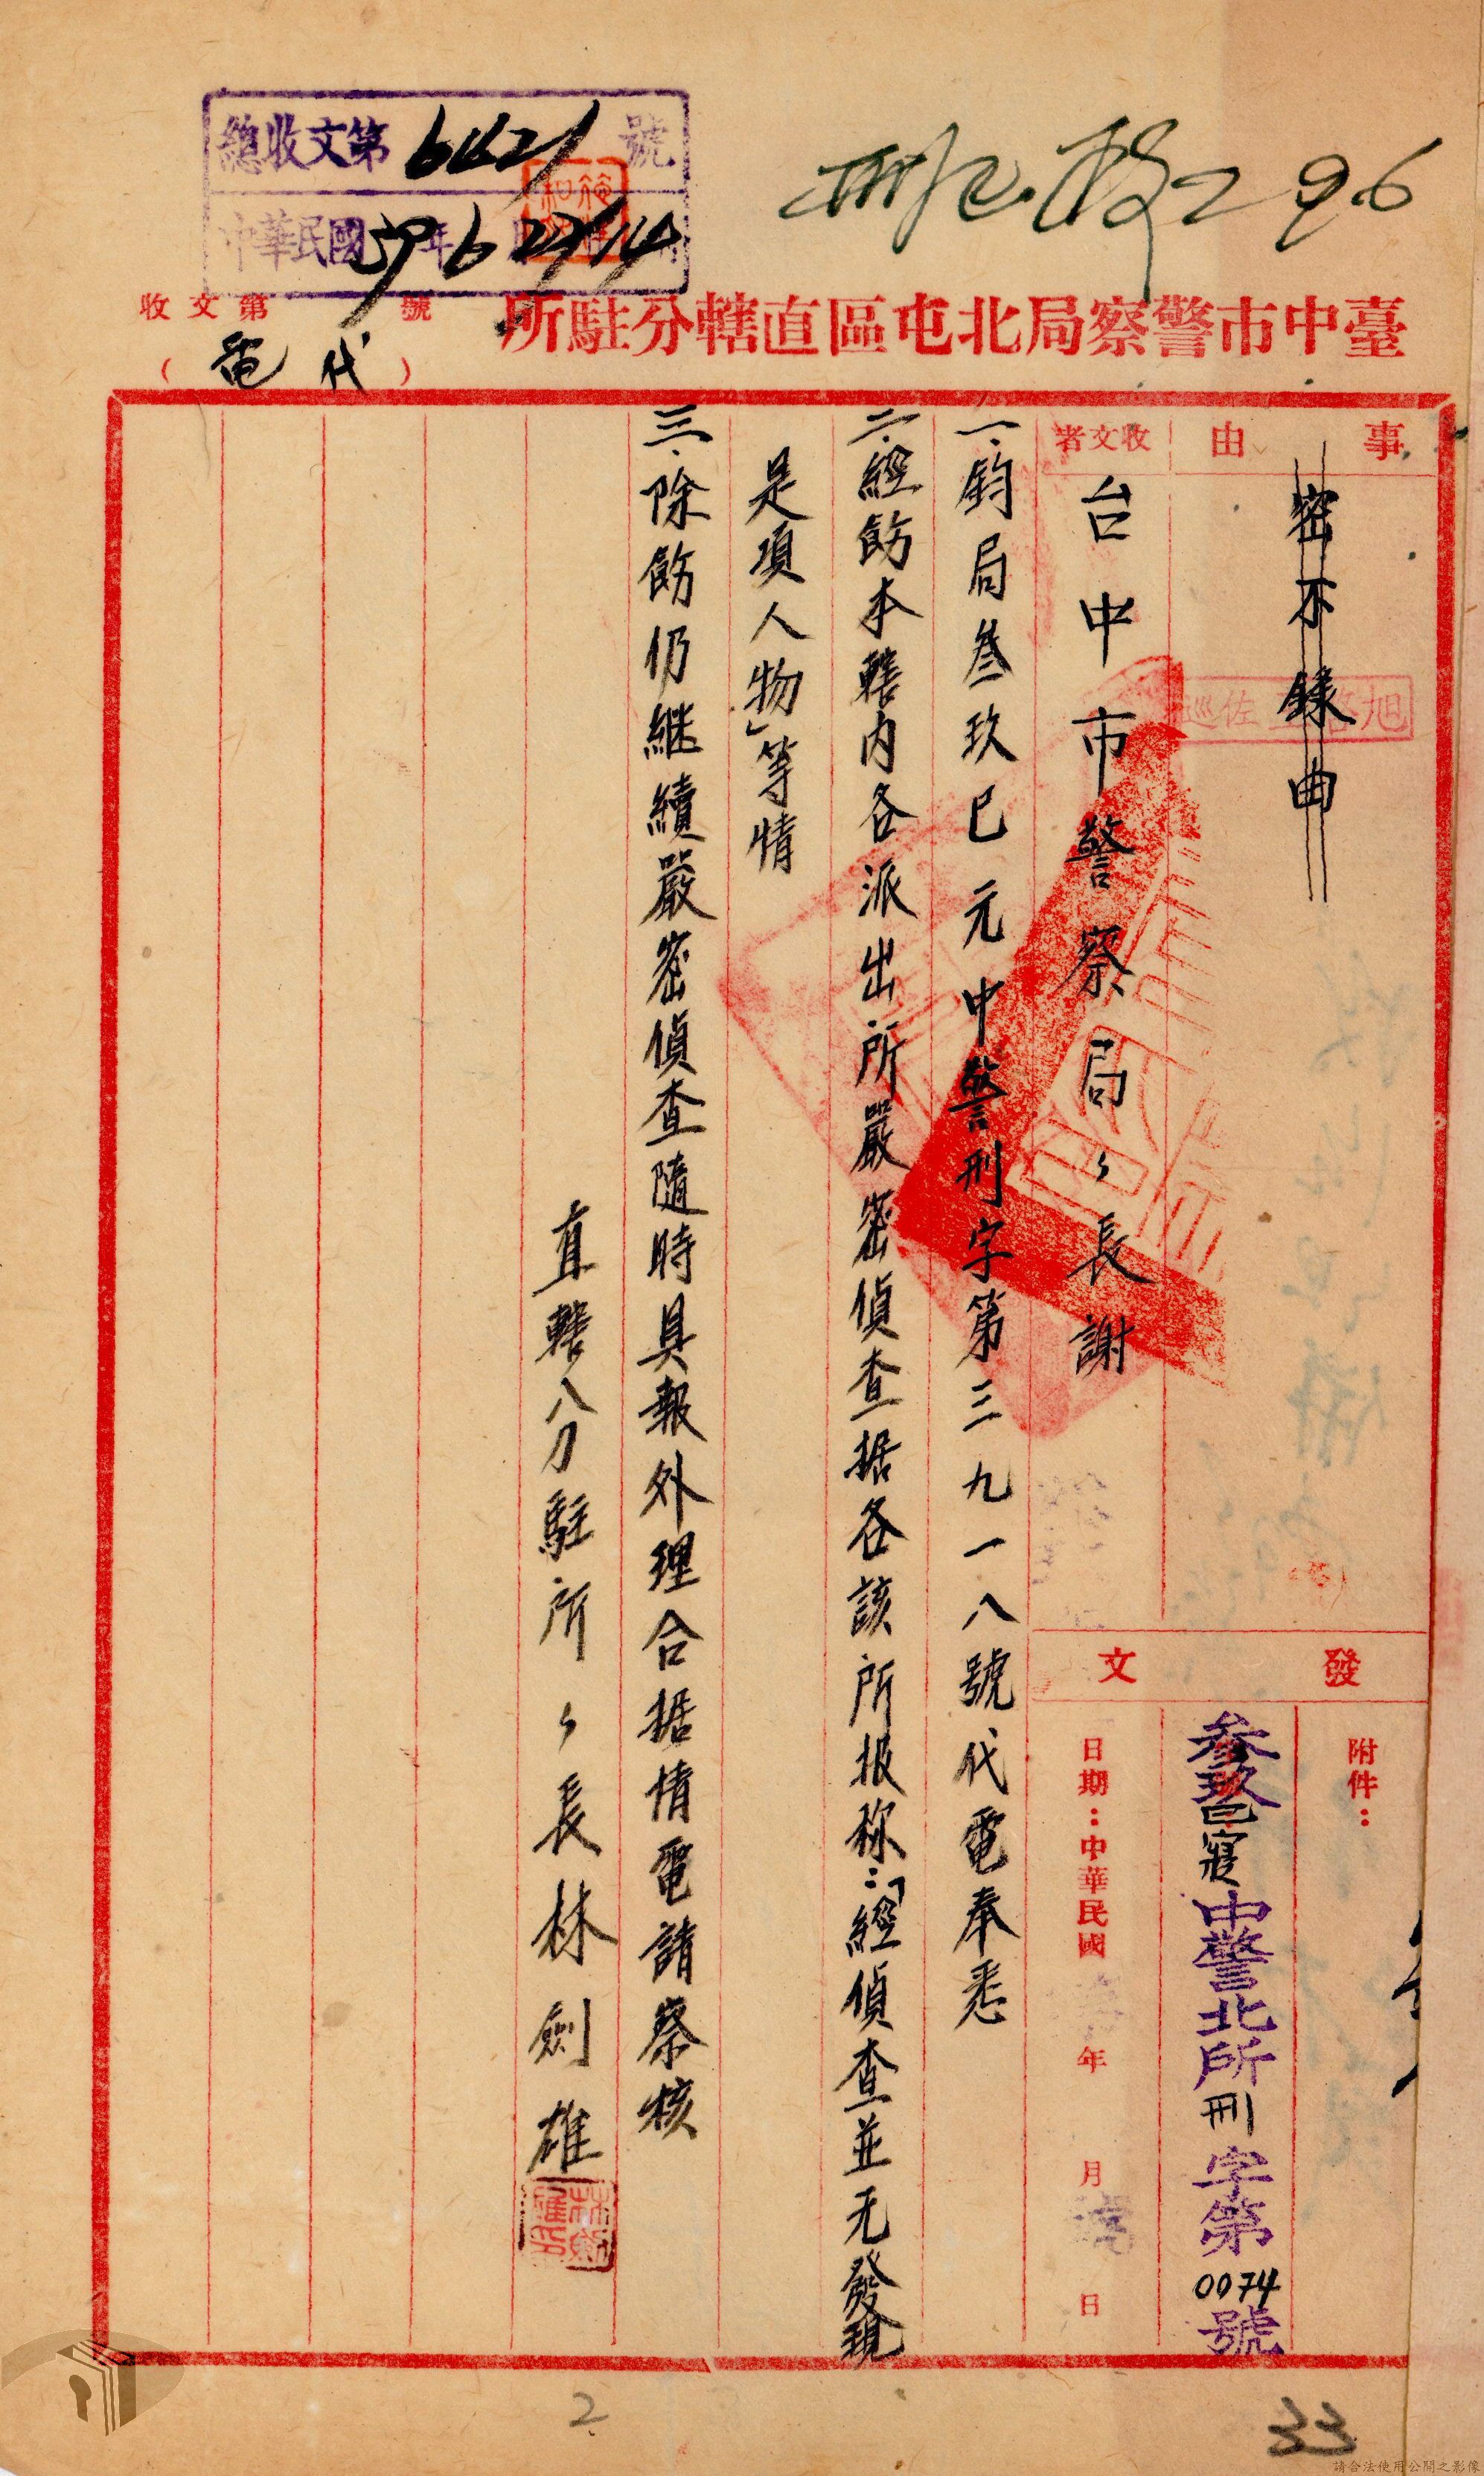 總收文第6621號
中華民國39年6月27日14時
收文第 號
(代電)
臺中市警察局北屯區直轄分駐所
事由
密不錄由
收文者
台中市警察局々長謝
發文
附件：
叁玖巳寢中警北所刑字第0074號
日期：中華民國 年 月 日
一.鈞局叁玖巳元中警刑字第三九一八號代電奉悉
二.經飭本轄內各派出所嚴密偵查据各該所报称：「經偵查並无發現
是項人物」等情
三.除飭仍継續嚴密偵查隨時具報外理合据情電請察核
直轄分駐所々長林劍雄
林劍雄印
2
33
請合法使用公開之影像